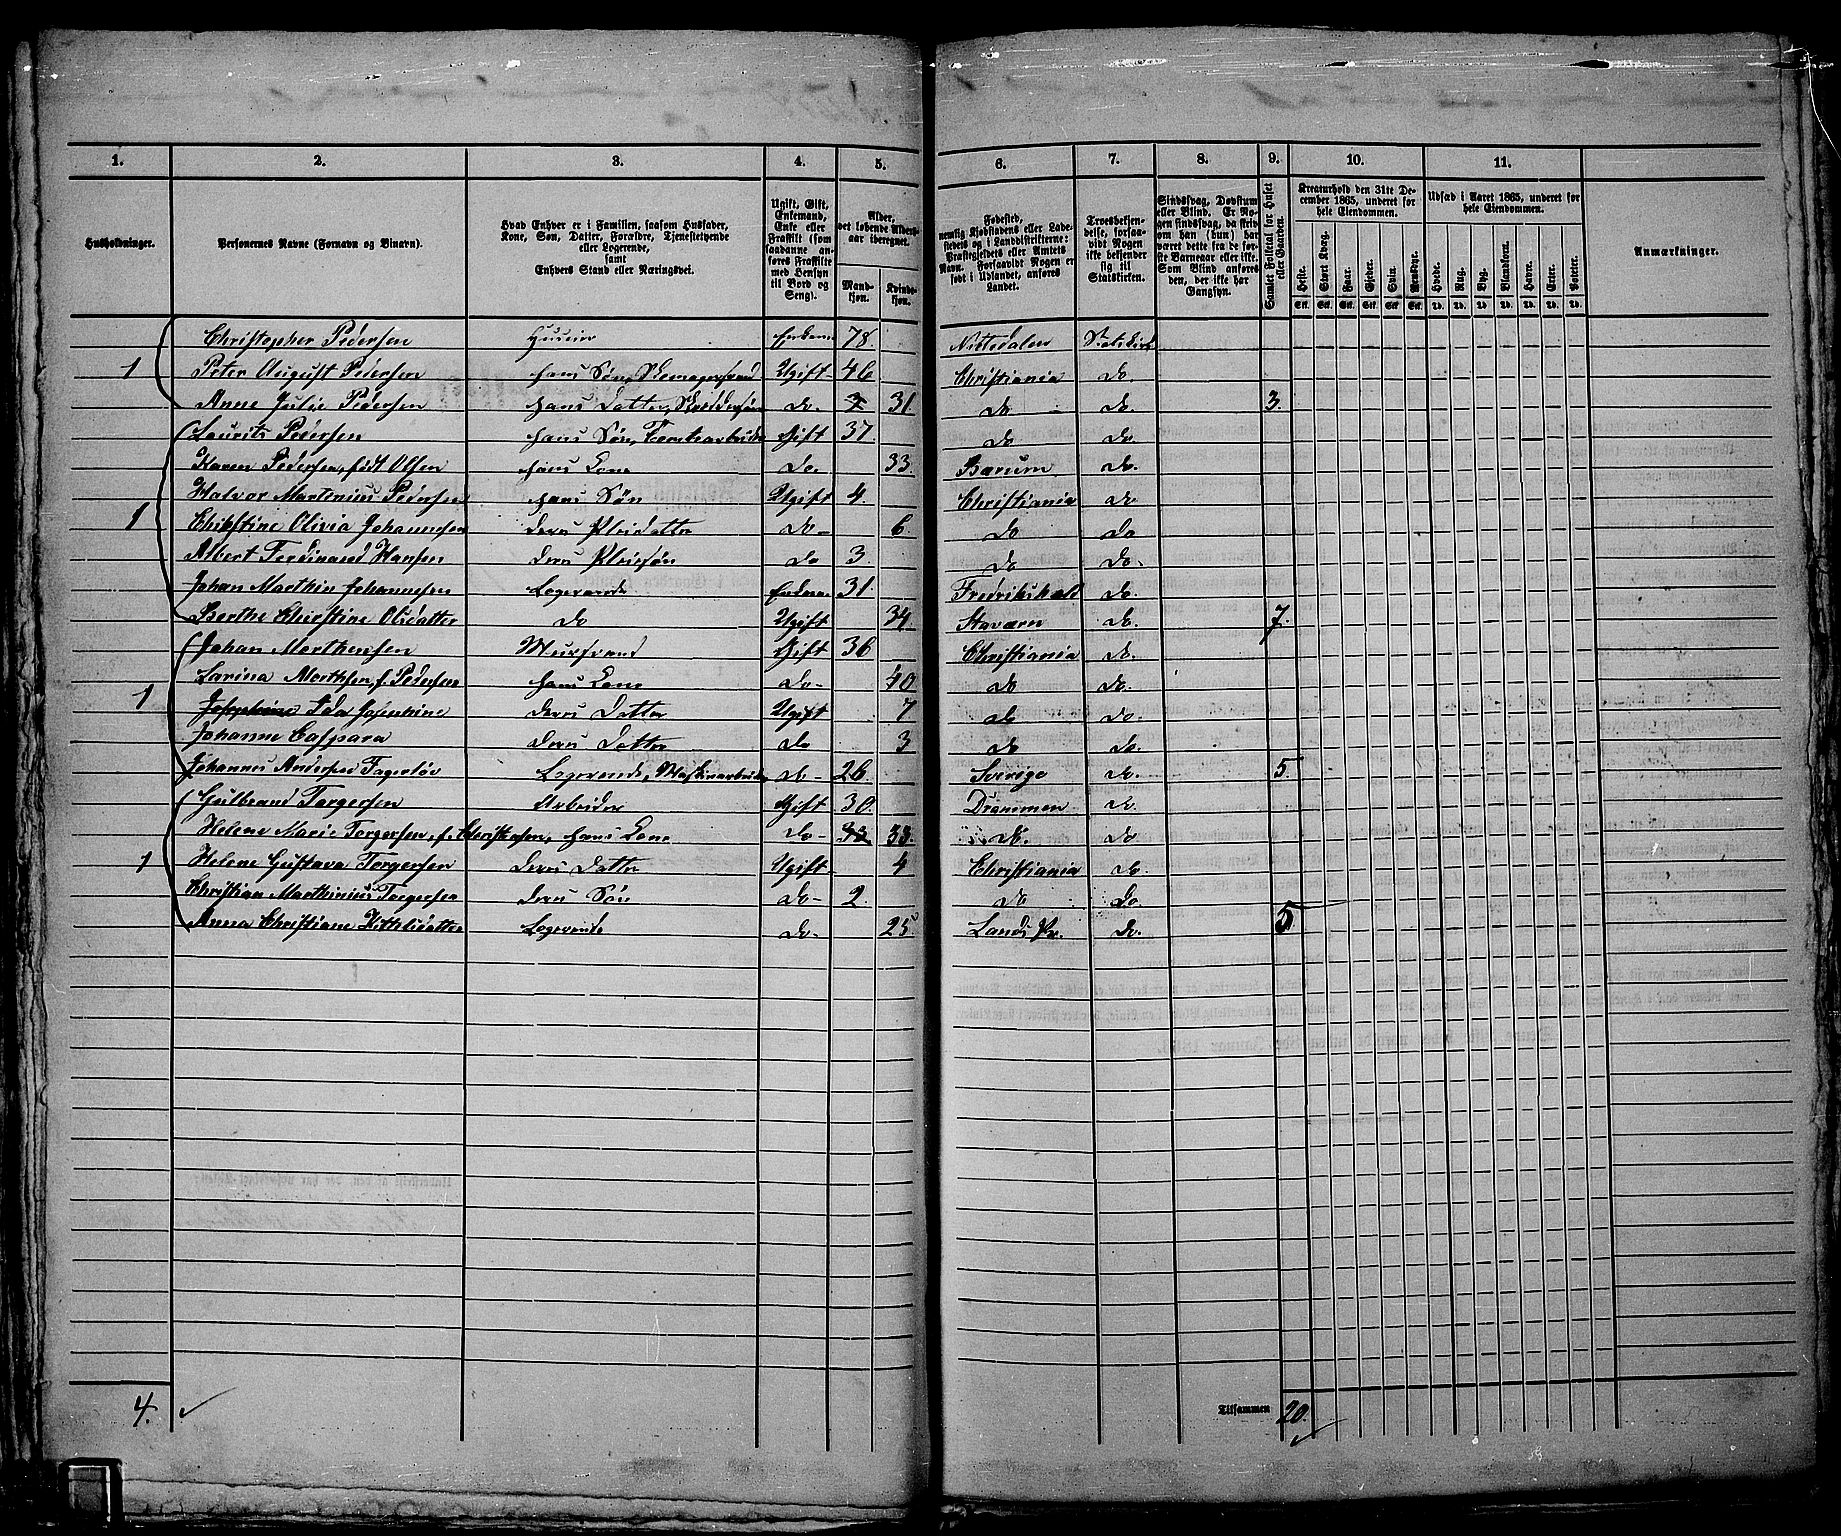 1. 2. 3. 4. 5. 6. 7. 8. 9. 10. 11.
Husholdninger.
Personernes Navne (Fornavn og Binavn).
Hvad Enhver er i Familien, saasom Husfader,
Kone, Søn, Datter, Forældre, Tjenestetyende
eller Logerende,
samt
Enhvers Stand eller Næringsvei.
Ugift, Gift,
Enkemand,
Enke eller
Fraskilt (som
saadanne an-
føres Fraskilte
med Hensyn
til Bord og
Seng).
Alder,
det løbende Alders-
aar iberegnet.
Mand-
kjøn.
Kvind-
kjøn.
Fødested,
nemlig Kjøbstadens eller Lade-
stedets og i Landdistrikterne:
Præstegjeldets eller Amtets
Navn. Forsaavidt Nogen er
født i Udlandet, anføres
Landet.
Troesbekjen-
delse, forsaa-
vidt Nogen
ikke bekjender
sig til
Statskirken.
Sindssvag, Døvstum
eller Blind. Er No-
gen sindssvag, da skriv
om han (hun) har
været dette fra de før-
ste Barneaar eller ikke.
Som Blind anføres
den, der ikke har
Gangsyn.
Samlet Folketal for Huset
eller Gaarden.
Kreaturhold den 31te De-
cember 1865, underet for
hele Eiendommen.
Heste. Stort Kvæg. Faar. Gjeder. Svin. Rensdyr.
Stk. Stk. Stk. Stk. Stk. Stk.
Udsæd i Aaret 1865, underet for
hele Eiendommen.
Hvede. Rug. Byg. Blandkorn. Havre. Erter. Poteter.
Td. Td. Td. Td. Td. Td. Td.
Anmærkninger.
Christopher Pedersen Huseier Enkem 78. Nittedalen Statskirk
1 Peter August Pedersen hans Søn, Ugift 46 Christiania do.
Anne Julie Pedersen hans Datter, do. 31. do do. 3.
Laurits Pedersen hans Søn, Gift 37. do do
Karen Pedersen, født Olsen hans Kone do. 33. Bærum do.
Halvor Martinius Pedersen hans Søn Ugift 4. Christiania do
1 Christine Olivia Johannesen deres Pleiedatter do 6. do do
Albert Ferdinand Hansen deres Pleiesøn do 3. do do.
Johan Marthin Johannesen Logerende Enkem 31. Fredrikshald do.
Berthe Christine Olsdatter do Ugift 34. Staværn do. 7.
Johan Marthensen Gift 36 Christiania do.
Larina Marthsen f. Pedersen hans Kone do 40 do do.
1 Josephine Ida Josephine deres Datter Ugift 7 do do.
Johanne Caspara deres Datter do 3 do do.
Johannes Andersen Logerende, Maskinarbeider do 26. Sverige do. 5.
Gulbrand Torgersen Arbeider Gift 30. Drammen do.
Helene Marie Torgersen, f. Christensen, hans Kone do 33. do. do
1 Helene Gustava Torgersen deres Datter Ugift 4 Christiania do.
Christian Marthinius Torgersen deres Søn do 2. do do
Anna Christiane Logerende do. 25. Lands Pr. do. 5
4.
Tilsammen 20.